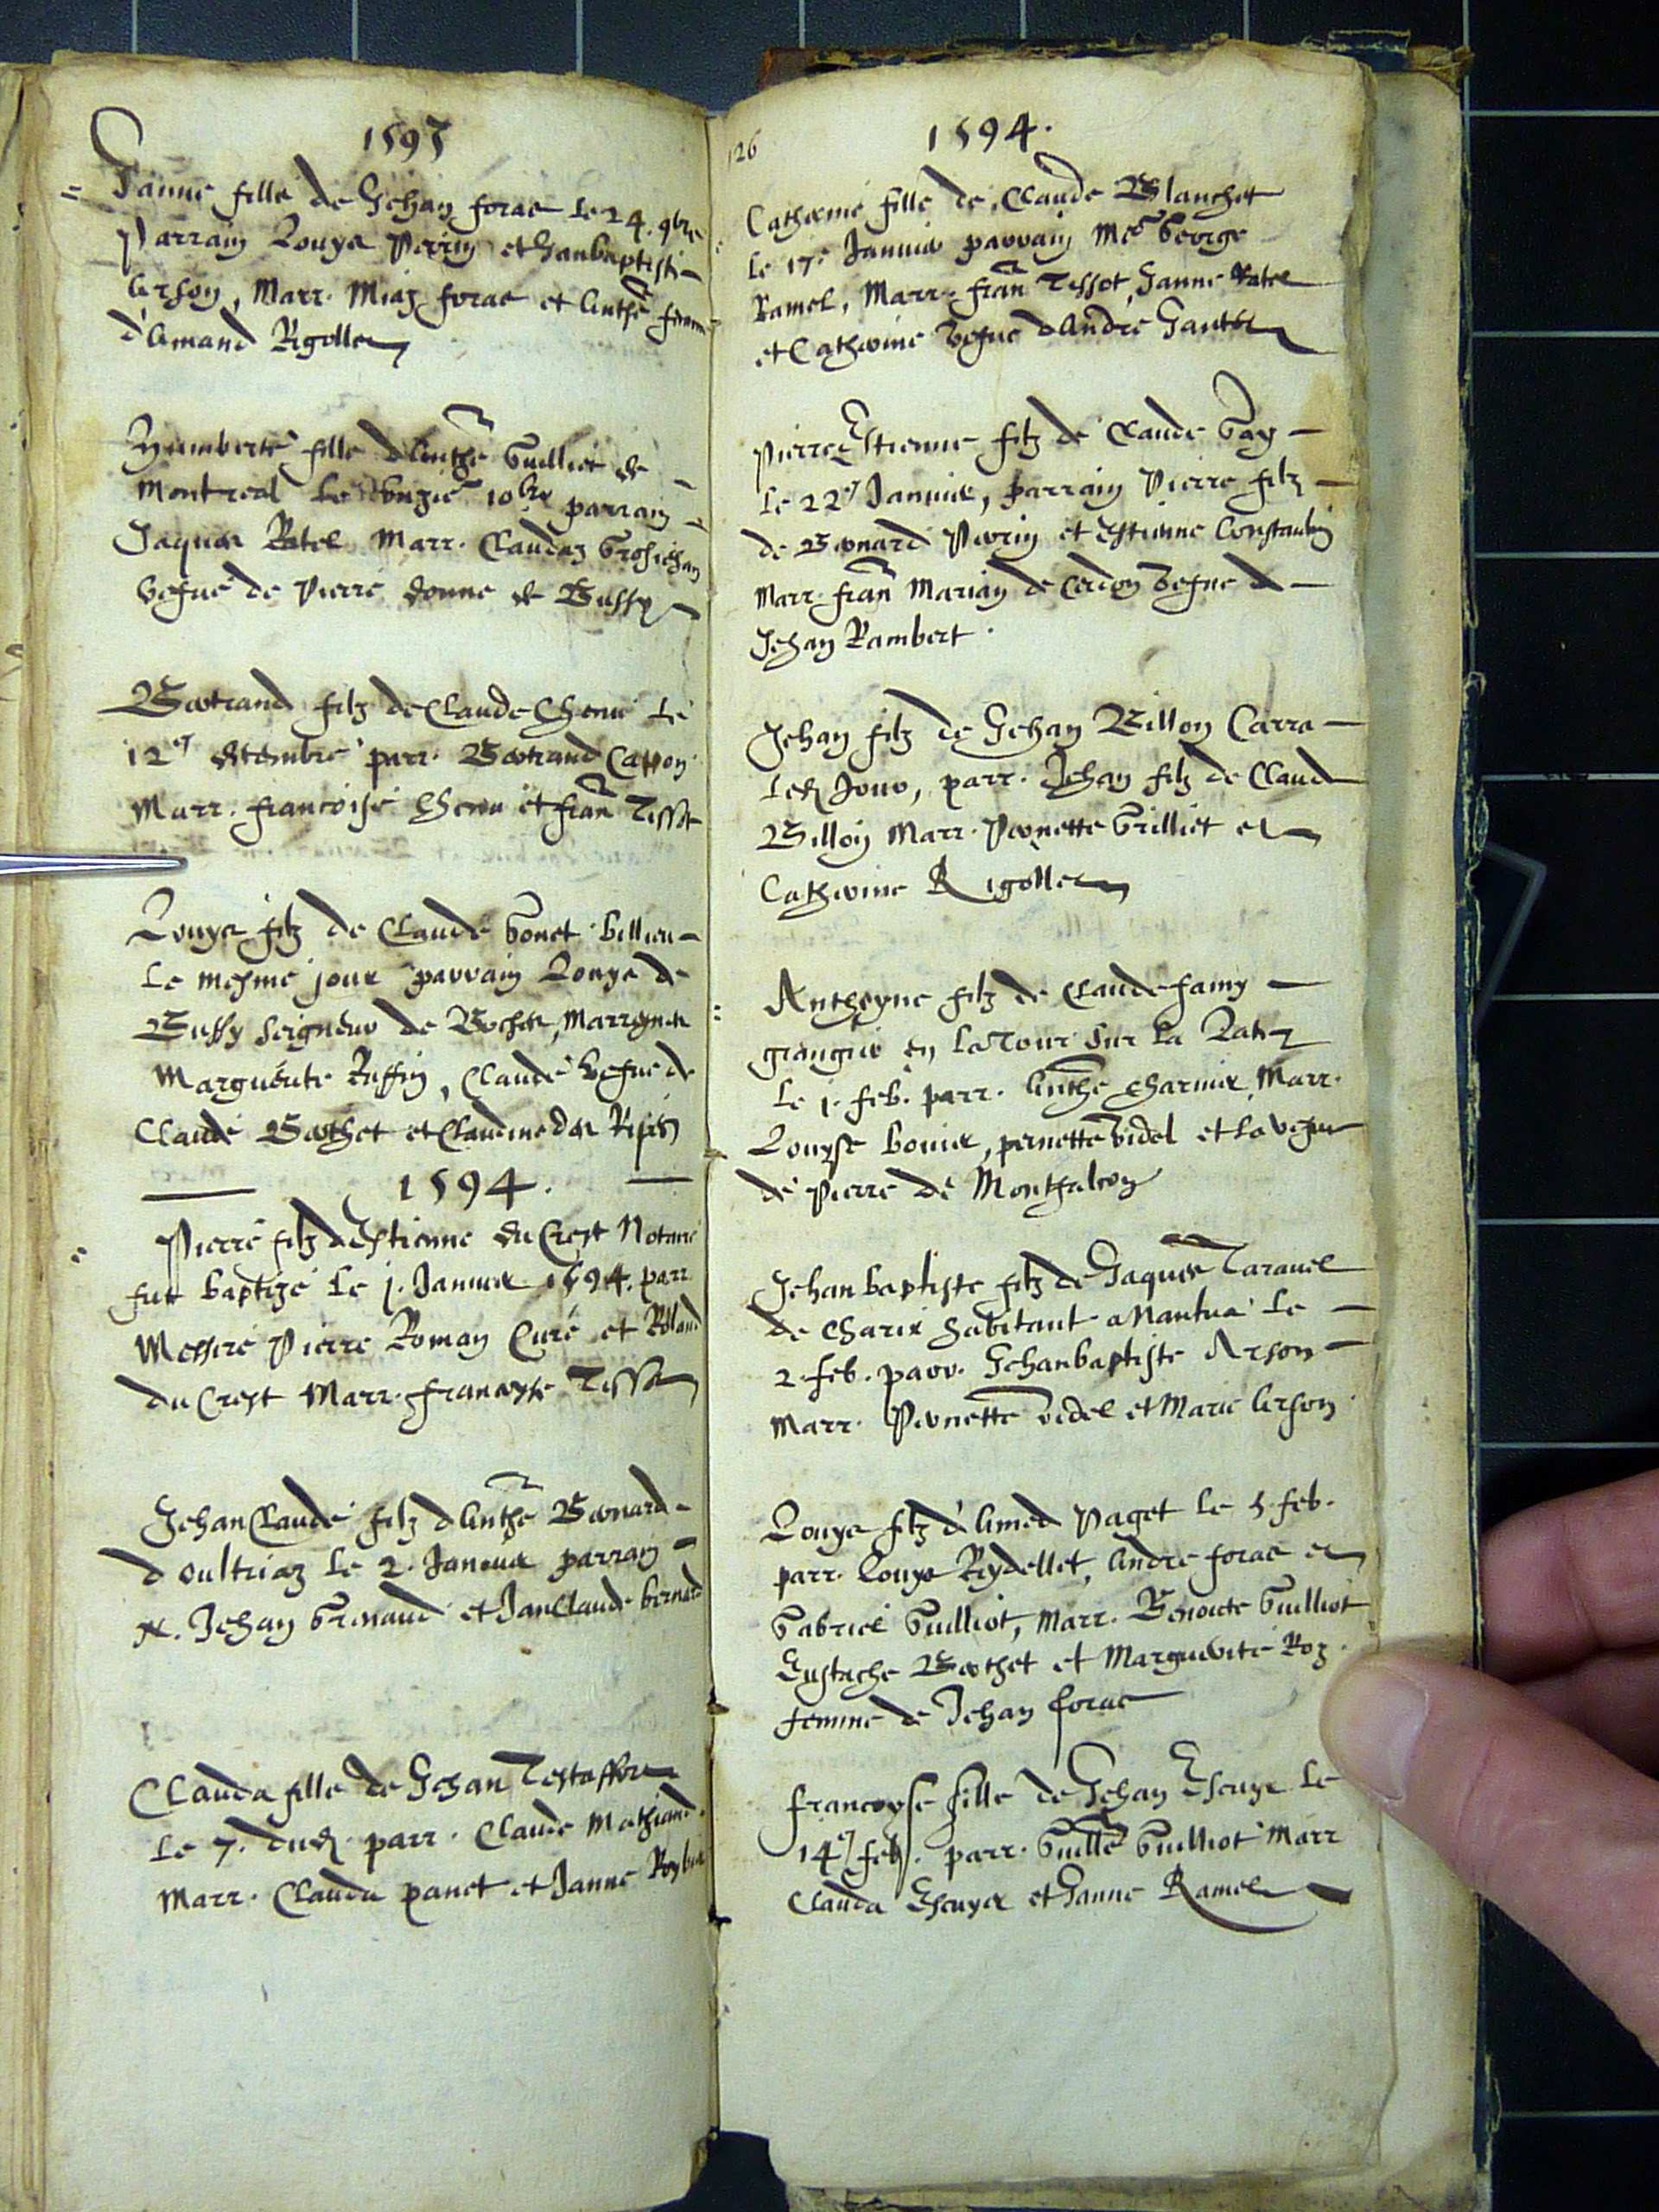 1593
Janne fille de Jehan forac le 24. 9bre
Parrain Louys Perrin et Janbaptiste
Arson, Marr. Miaz forac et Anthe femme
d'Amand Rigollet
Humberte fille d'Anthe Guilliet de
Montreal le unzie 10bre parrain
Jaques Ratel Marr. Claudaz
vefue de Pierre donne de Bussy
Bertrand filz de Claude Chenu le
12e decembre parr. Bertrand Cappon
Marr. francoise Chenu et fran Tissot
Louys filz de Claude Gonet Billieu
le mesme jour parrain Louys de
Bussy seigneur de Marrynes
Marguerite Ruffin, Claude vefue de
Claude Berthet et Claudine des
1594.
Pierre filz d'Estienne du Crest Notaire
fut baptizé le j. Januier 1594. parr
Messire Pierre Roman Curé et Roland
du Crest Marr. francoyse Tissot
Jehan Claude filz d'Anthe Bernard
d'oultriaz le 2. Januier parrain
Jehan Grenaud et Janclaude bernard
Clauda fille de Jehan
le 7. dud. parr. Claude Mathiand
Marr. Clauda panet et Janne
126
1594.
Catherine fille de Claude Blanchet
le 17e Januier parrain Mre George
Ramel, Marr. fran Tissot, Janne Ratel
et Catherine vefue d'Andre Gautier
Pierre Estienne filz de Claude Gay
le 22e Januier, parrain Pierre filz
de Bernard Perrin et Estienne Constantin
Marr. fran Marian de Cerdon vefue de
Jehan Rambert.
Jehan filz de Jehan Billon Carra
led Jour, parr. Jehan filz de Claude
Billon Marr. Pernette Grilliet et
Catherine Rigollet
Antheyne filz de Claude famy
grangier en la Tour sur la
le j. feb. parr. Anthe charnier Marr.
Louyse bonier, pernette videl et la vefue
de Pierre de Montfalcon
Jehanbaptiste filz de Jaques Tarauel
de charix habitant a Nantua le
2. feb. parr. Jehanbaptiste Arson
Marr. Pernette videl et Marie Arson
Louys filz d'Amed Paget le 5. feb.
parr. Louys Reydellet, Andre forac et
Gabriel Guilliot, Marr. Benoicte Guilliot
Eustache Berthet et Marguerite Roz
femme de Jehan forac
francoyse fille de Jehan Escuyer le
14e feb. parr. Guille Guilliot Marr
Clauda Escuyer et Janne Ramel